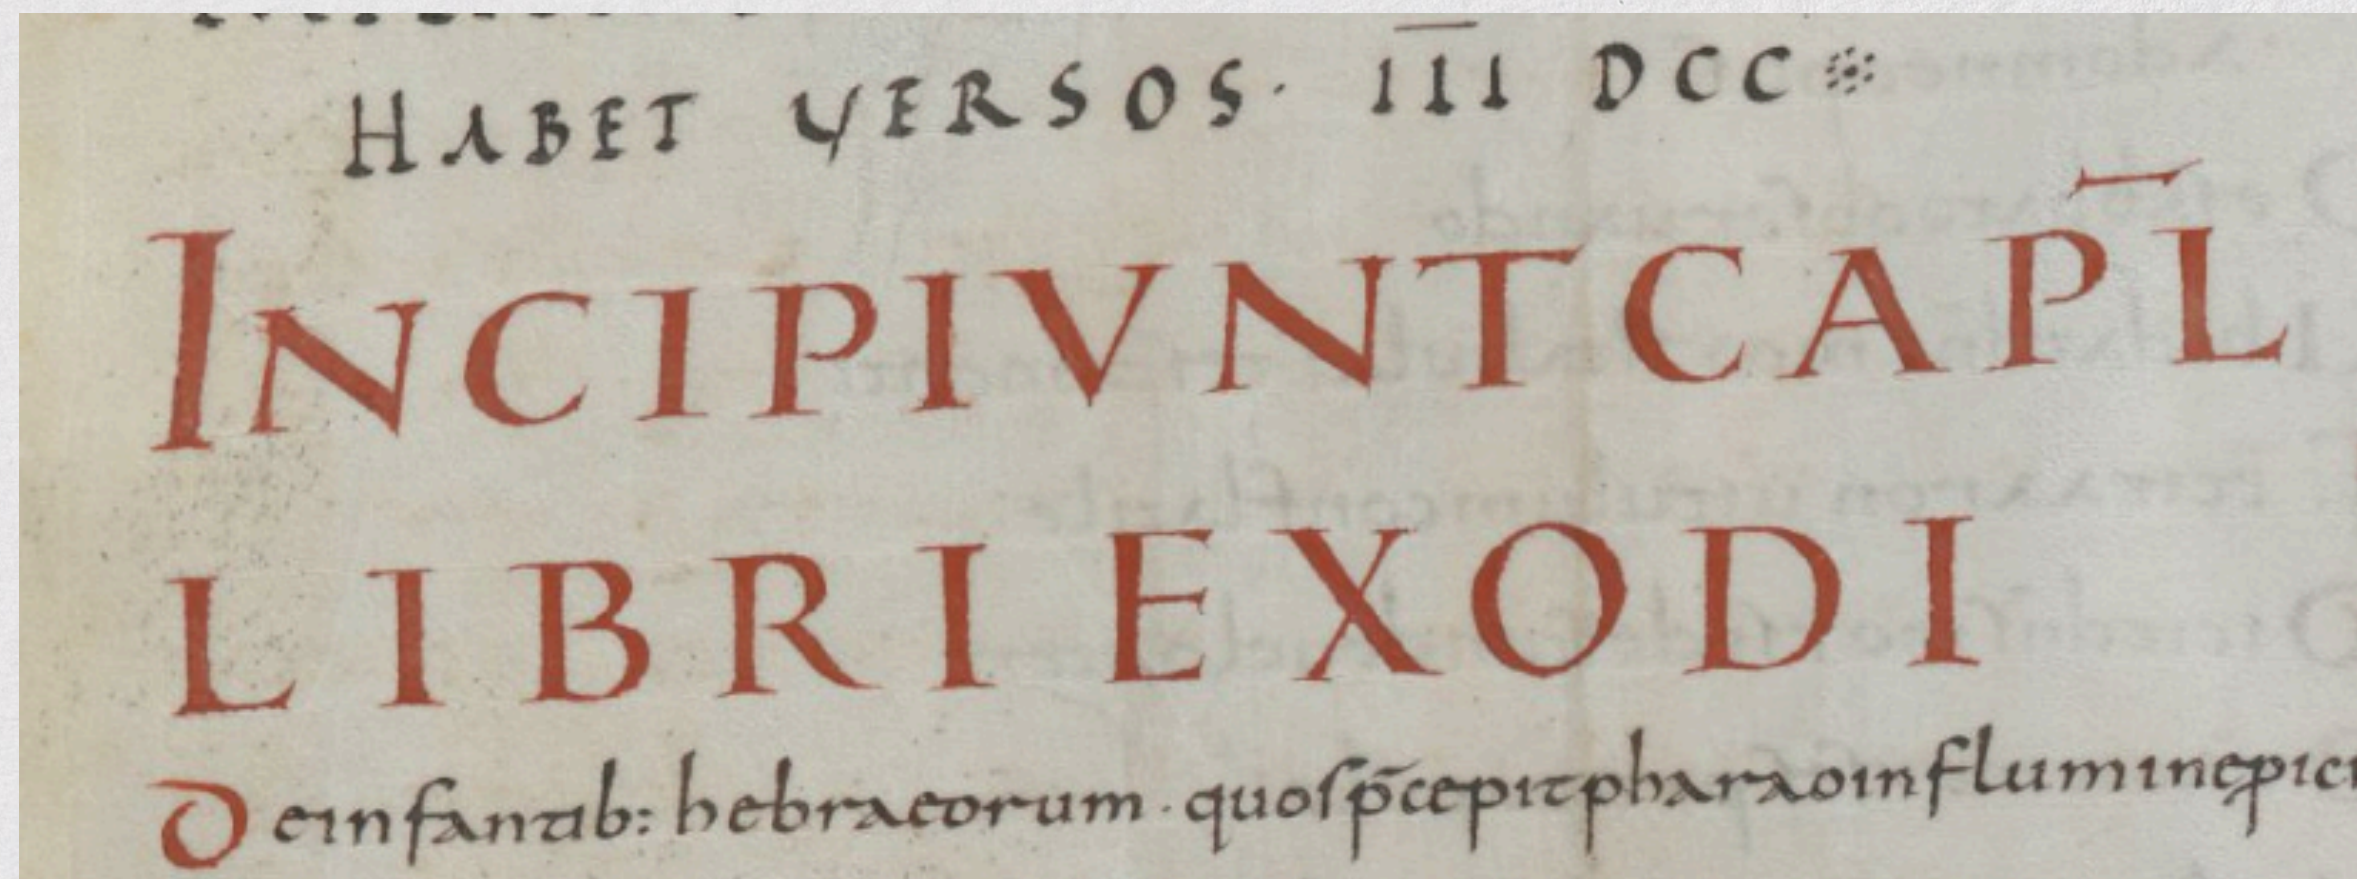 HABET VERSOS· I̅I̅I̅ DCC
INCIPIVNT CAPL̅
LIBRI EXODI
De infantib: hebraeorum · quos p̄cepit pharao in flumine